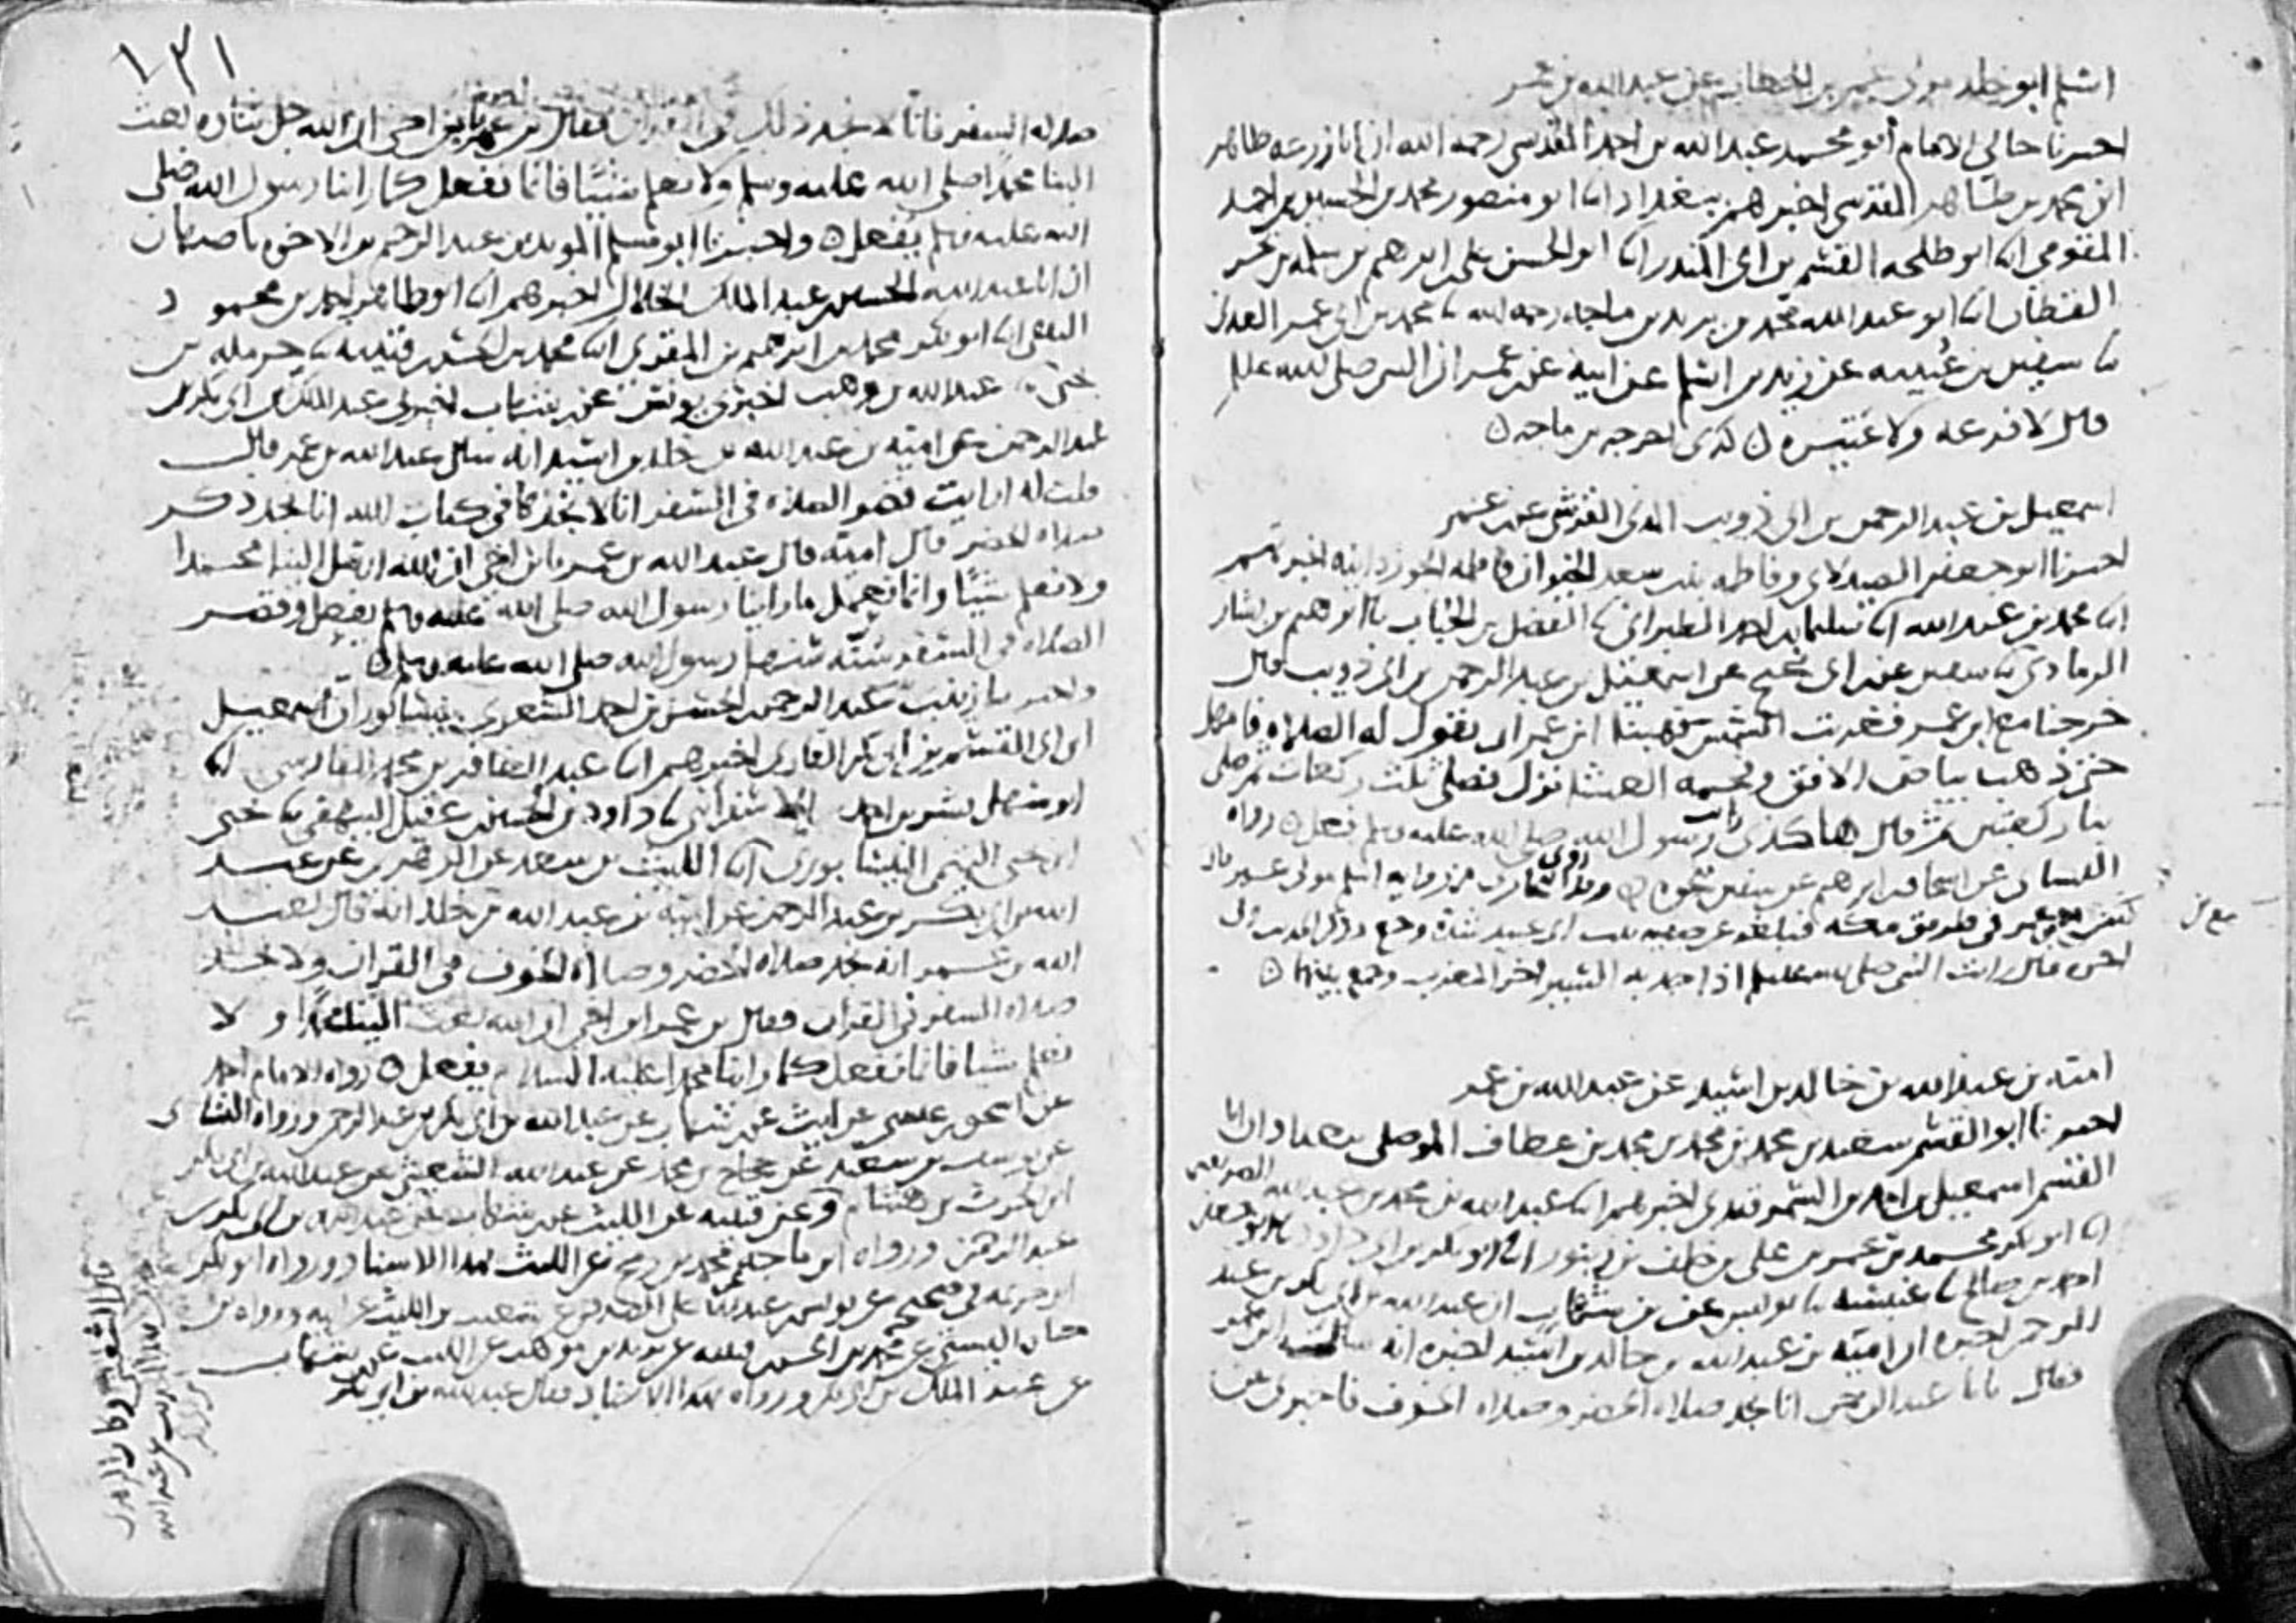 اسلم ابو خلد مولى عمر بن الخطاب عن عبد الله بن عمر
اخبرنا خالي الامام ابو محمد عبد الله بن احمد المقدسي رحمه الله ان ابا زرعه طاهر
ابن محمد بن طاهر المقدسي اخبرهم ببغداد انا ابو منصور محمد بن الحسين بن احمد
المقومي انا ابو طلحه القسم بن ابي المنذر انا ابو الحسن علي بن ابرهيم بن سلمه بن بحر
القطان انا ابو عبد الله محمد بن يزيد بن ماجه رحمه الله نا محمد بن ابي عمر العدني
نا سفين بن عيينه عن زيد بن اسلم عن ابيه عن بن عمر ان النبي صلى الله عليه
قال لا فرعه ولا عتيره ٥ كذى اخرجه بن ماجه ٥
اسمعيل بن عبد الرحمن بن ابي ذويب المدني القرشي عن بن عمر
اخبرنا ابو جعفر الصيدلاني وفاطمه بنت سعد الخير ان فاطمه الجوزدانيه اخبرتهم
انا محمد بن عبد الله انا سليمان بن احمد الطبراني نا الفضل بن الحباب نا ابرهيم بن بشار
الرمادي نا سفين عن ابن ابي نجيح عن اسمعيل بن عبد الرحمن بن ابي ذويب قال
خرجنا مع ابن عمر فغربت الشمس فهبنا ابن عمر ان نقول له الصلاه فامهل
حتى ذهب بياض الافق وفحمه العشا نزل فصلى ثلث ركعات ثم صلى
بنا ركعتين ثم قال هاكذى رايت رسول الله صلى الله عليه وسلم فعل ٥ رواه
النساى عن اسحاق بن ابرهيم عن سفين نحوه ٥ وقد روى البخاري من روايه اسلم مولى عمر قال
كنت مع بن عمر في طريق مكه فبلغه عن صفيه بنت ابي عبيد شدة وجع وذكر الحديث الى
اخره قال رايت النبي صلى الله عليه وسلم اذا جد به السير اخر المغرب وجمع بينهما ٥
اميه بن عبد الله بن خالد بن اسيد عن عبد الله بن عمر
اخبرنا ابو القسم سعيد بن محمد بن محمد بن محمد بن عطاف الموصلي ببغداد ان ابا
القسم اسمعيل بن احمد بن السمرقندي اخبرهم انا عبد الله بن محمد بن عبد الله الصريفيني
انا ابو بكر محمد بن عمر بن علي بن خلف بن زنبور انا ابو بكر بن ابي داود نا ابو جعفر
احمد بن صالح نا عنبسه نا يونس عن بن شهاب ان عبد الله بن ابي بكر بن عبد
الرحمن اخبره ان اميه بن عبد الله بن خالد بن اسيد اخبره انه سال ابن عمر
فقال يابا عبد الرحمن انا نجد صلاه الحضر وصلاه الخوف فاخبرني عن
١٣١
صلاه السفر فانا لا نجد ذلك في القران فقال بن عمر يا بن اخي ان الله جل ثناوه بعث
الينا محمدا صلى الله عليه وسلم ولا نعلم شيئا فانما نفعل كما راينا رسول الله صلى
الله عليه وسلم يفعل ٥ واخبرنا ابو مسلم المويد بن عبد الرحيم بن الاخوه باصبهان
ان ابا عبد الله الحسين بن عبد الملك الخلال اخبرهم انا ابو طاهر احمد بن محمود
الثقفي انا ابو بكر محمد بن ابرهيم بن المقري انا محمد بن الحسن بن قتيبه نا حرمله بن
يحيى نا عبد الله بن وهب اخبرني يونس عن بن شهاب اخبرني عبد الملك بن ابي بكر بن
عبد الرحمن عن اميه بن عبد الله بن خلد بن اسيد انه سال عبد الله بن عمر قال
قلت له ارايت قصر الصلاه في السفر انا لا نجدها في كتاب الله انا نجد ذكر
صلاه الحضر قال اميه قال عبد الله بن عمر يا بن اخي ان الله ارسل الينا محمدا
ولا نعلم شيئا وانما نعمل ما راينا رسول الله صلى الله عليه وسلم يفعل وقصر
الصلاه في السفر سنه سنها رسول الله صلى الله عليه وسلم ٥
واخبرتنا زينب بنت عبد الرحمن بن الحسن بن احمد الشعري بنيسابور ان اسمعيل
ابن ابي القسم بن ابي بكر القاري اخبرهم انا عبد الغافر بن محمد الفارسي انا
ابو سهل بشر بن احمد الاسفرايني نا داود بن الحسين بن عقيل البيهقي نا يحيى
ابن يحيى التميمي النيسابوري انا الليث بن سعد عن الزهري عن عبد
الله بن ابي بكر بن عبد الرحمن عن اميه بن عبد الله بن خلد انه قال لعبد
الله بن عمر انا نجد صلاه الحضر وصلاه الخوف في القران ولا نجد
صلاه السفر في القران فقال بن عمر ابن اخي ان الله بعث الينا محمدا ولا
نعلم شيا فانما نفعل كما راينا محمدا عليه السلام يفعل ٥ رواه الامام احمد
عن اسحق بن عيسى عن ليث عن بن شهاب عن عبد الله بن ابي بكر بن عبد الرحمن ورواه النساى
عن يوسف بن سعيد عن حجاج بن محمد عن عبد الله الشعيثي عن عبد الله بن ابي بكر
ابن الحرث بن هشام وعن قتيبه عن الليث عن بن شهاب عن عبد الله بن ابي بكر بن
عبد الرحمن ورواه ابن ماجه عن محمد بن رمح عن الليث بهذا الاسناد ورواه ابو بكر
ابن خزيمه في صحيحه عن يونس بن عبد الاعلى الصدفي عن شعيب بن الليث عن ابيه ورواه بن
حبان البستي عن محمد بن الحسن بن قتيبه عن يزيد بن موهب عن الليث عن بن شهاب
عن عبد الملك بن ابي بكر ورواه بهذا الاسناد فقال عبد الله بن ابي بكر